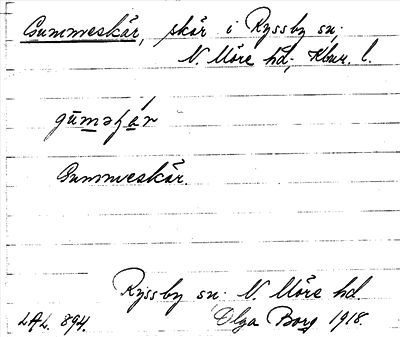 Gummeskär, skär i Ryssby sn;
N. Möre hd; Kbur. l.
gūməʃár
Gummeskär.
Ryssby sn; N. Möre hd.
LAL. 894. Olga Borg 1918.